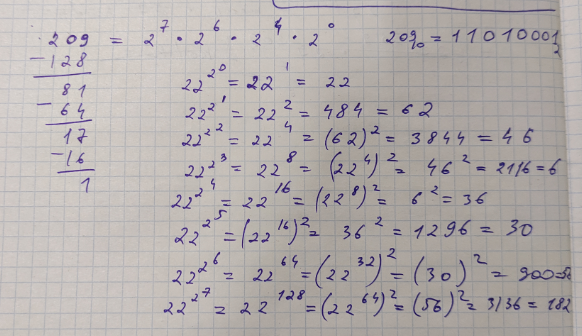 209 = 2⁷ · 2⁶ · 2⁴ · 2⁰ 209₁₀ = 11010001₂
-128
81
-64
17
-16
1
22^2^0 = 22¹ = 22
22^2^1 = 22² = 484 = 62
22^2^2 = 22⁴ = (62)² = 3844 = 46
22^2^3 = 22⁸ = (22⁴)² = 46² = 2116 = 6
22^2^4 = 22¹⁶ = (22⁸)² = 6² = 36
22^2^5 = (22¹⁶)² = 36² = 1296 = 30
22^2^6 = 22⁶⁴ = (22³²)² = (30)² = 900 = 56
22^2^7 = 22¹²⁸ = (22⁶⁴)² = (56)² = 3136 = 182